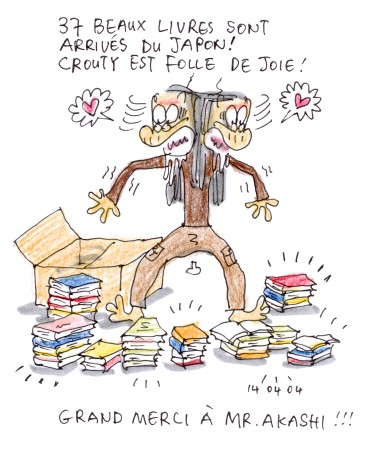 37 BEAUX LIVRES SONT
ARRIVÉS DU JAPON!
CROUTY EST FOLLE DE JOIE!
14 04 04
GRAND MERCI À MR. AKASHI!!!